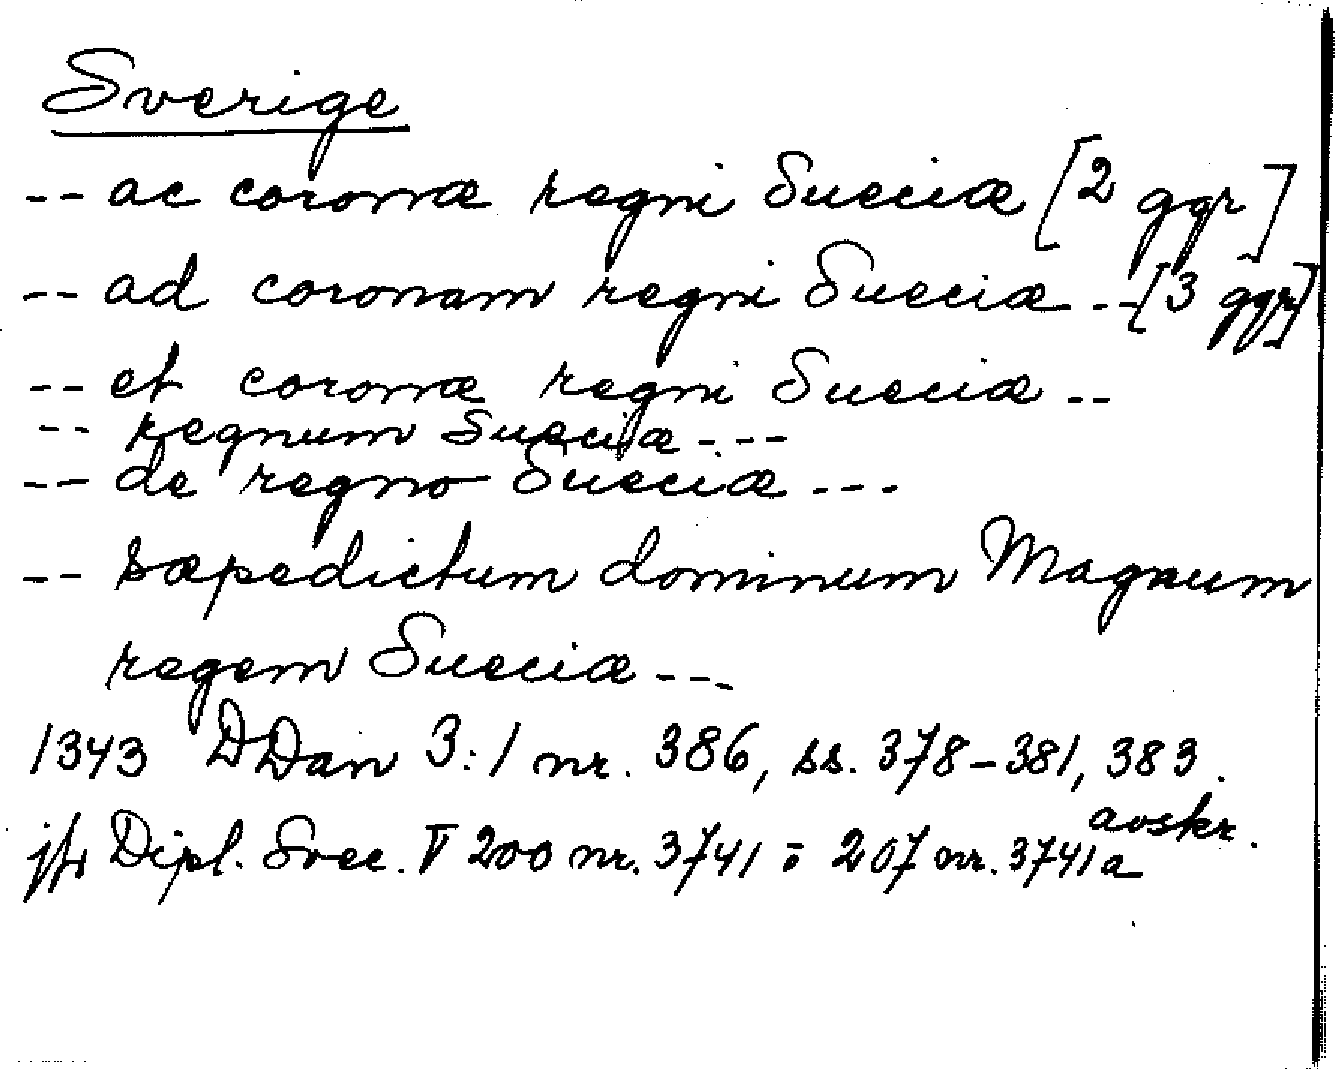 Sverige
-- ac coronæ regni Sueciæ [2 ggr]
-- ad coronam regni Sueciæ -- [3 ggr]
-- et coronæ regni Sueciæ --
-- regnum Sueciæ ---
-- de regno Sueciæ ---
-- sæpedictum dominum Magnum
regem Sueciæ ---
1343 DDan 3:1 nr. 386, ss. 378-381, 383.
avskr.
jfr Dipl. Svec. V 200 nr. 3741 o 207 nr. 3741a